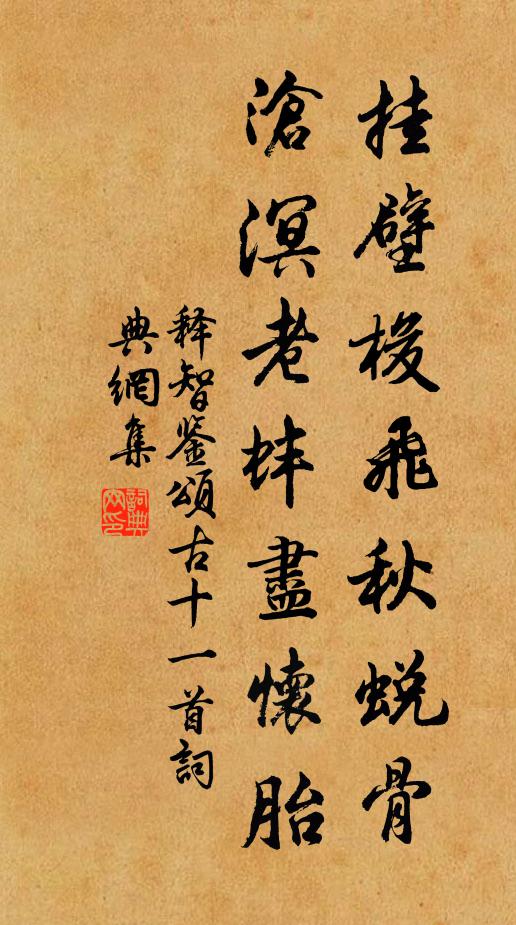 挂壁梭飛秋蜕骨
滄溟老蚌盡懷胎
释智鉴頌古十一首詞
典網集
詞典網印